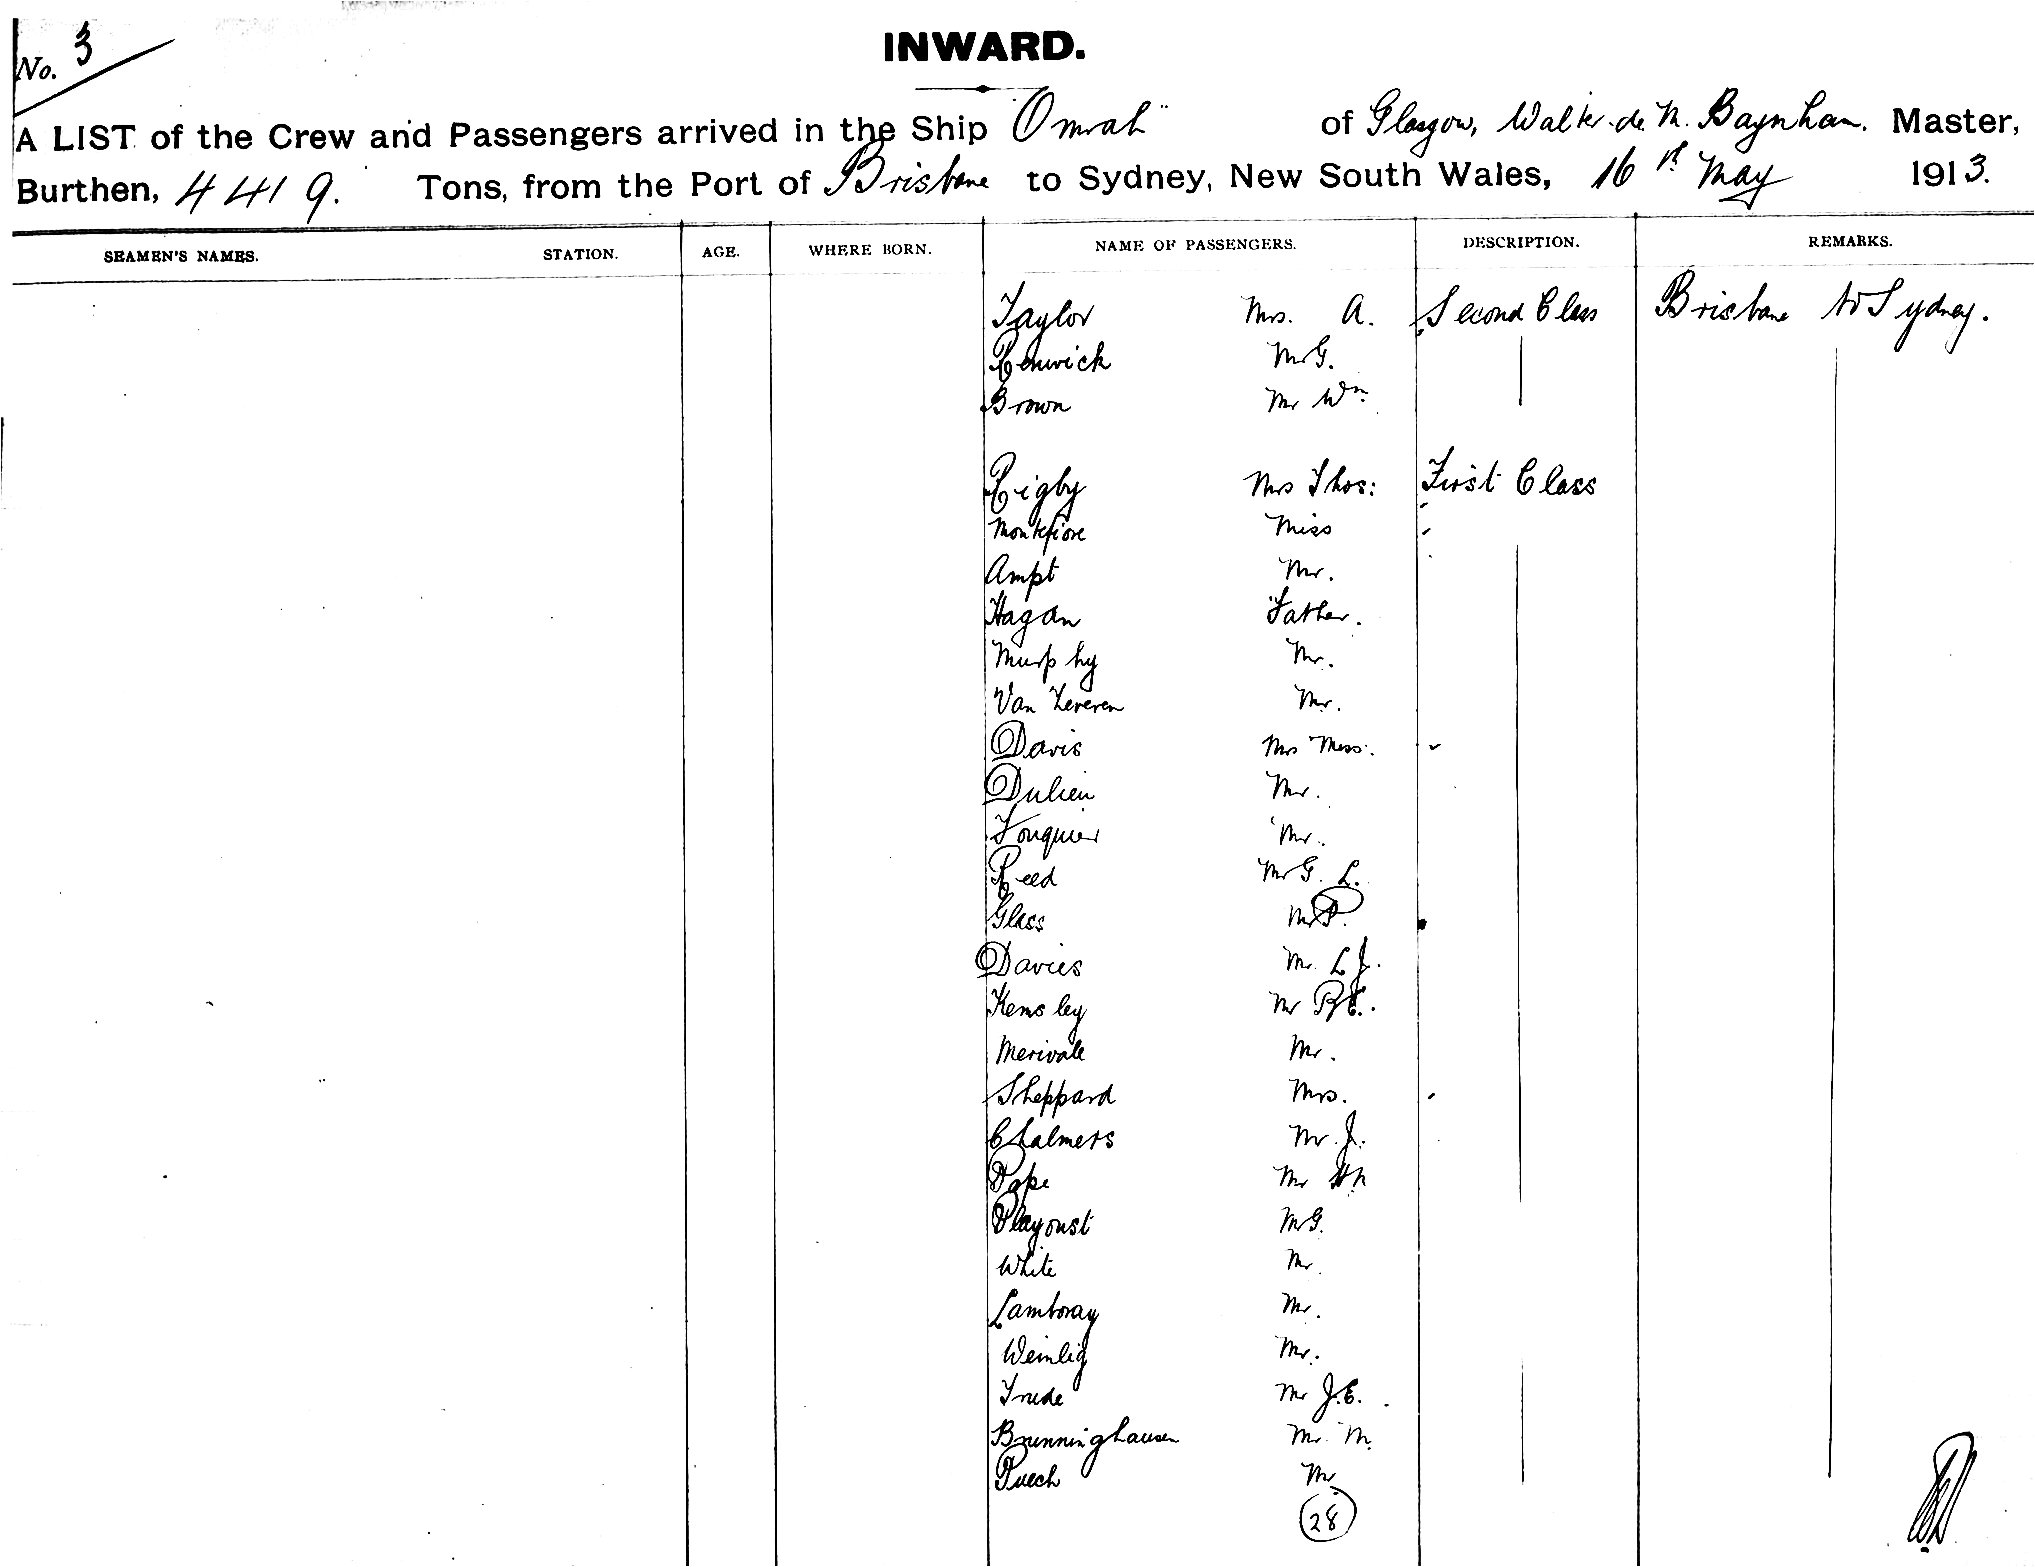 No. 3
INWARD.
A LIST of the Crew and Passengers arrived in the Ship Omrah of Glasgow, Walter de M. Baynham. Master,
Burthen, 4419. Tons, from the Port of Brisbane to Sydney, New South Wales, 16th May 1913.
SEAMEN'S NAMES. STATION. AGE. WHERE BORN. NAME OF PASSENGERS. DESCRIPTION. REMARKS.
Taylor Mrs. A. Second Class Brisbane to Sydney.
Renwick Mr G.
Brown Mr Wm
Rigby Mrs Thos: First Class
Montefiore Miss
Ampt Mr.
Hagan Father.
Murphy Mr.
Van Zeveren Mr.
Davis Mrs Miss.
Dulieu Mr.
Fouquier Mr.
Reed Mr G. L.
Glass Mr P.
Davies Mr. L J.
Kemsley Mr
Merivale Mr.
Sheppard Mrs.
Chalmers Mr. J.
Pope Mr
Playoust Mr G.
White Mr.
Lamboray Mr.
Weinlig Mr.
Trude Mr J.E.
Brunninghausen Mr. M.
Puech Mr
28